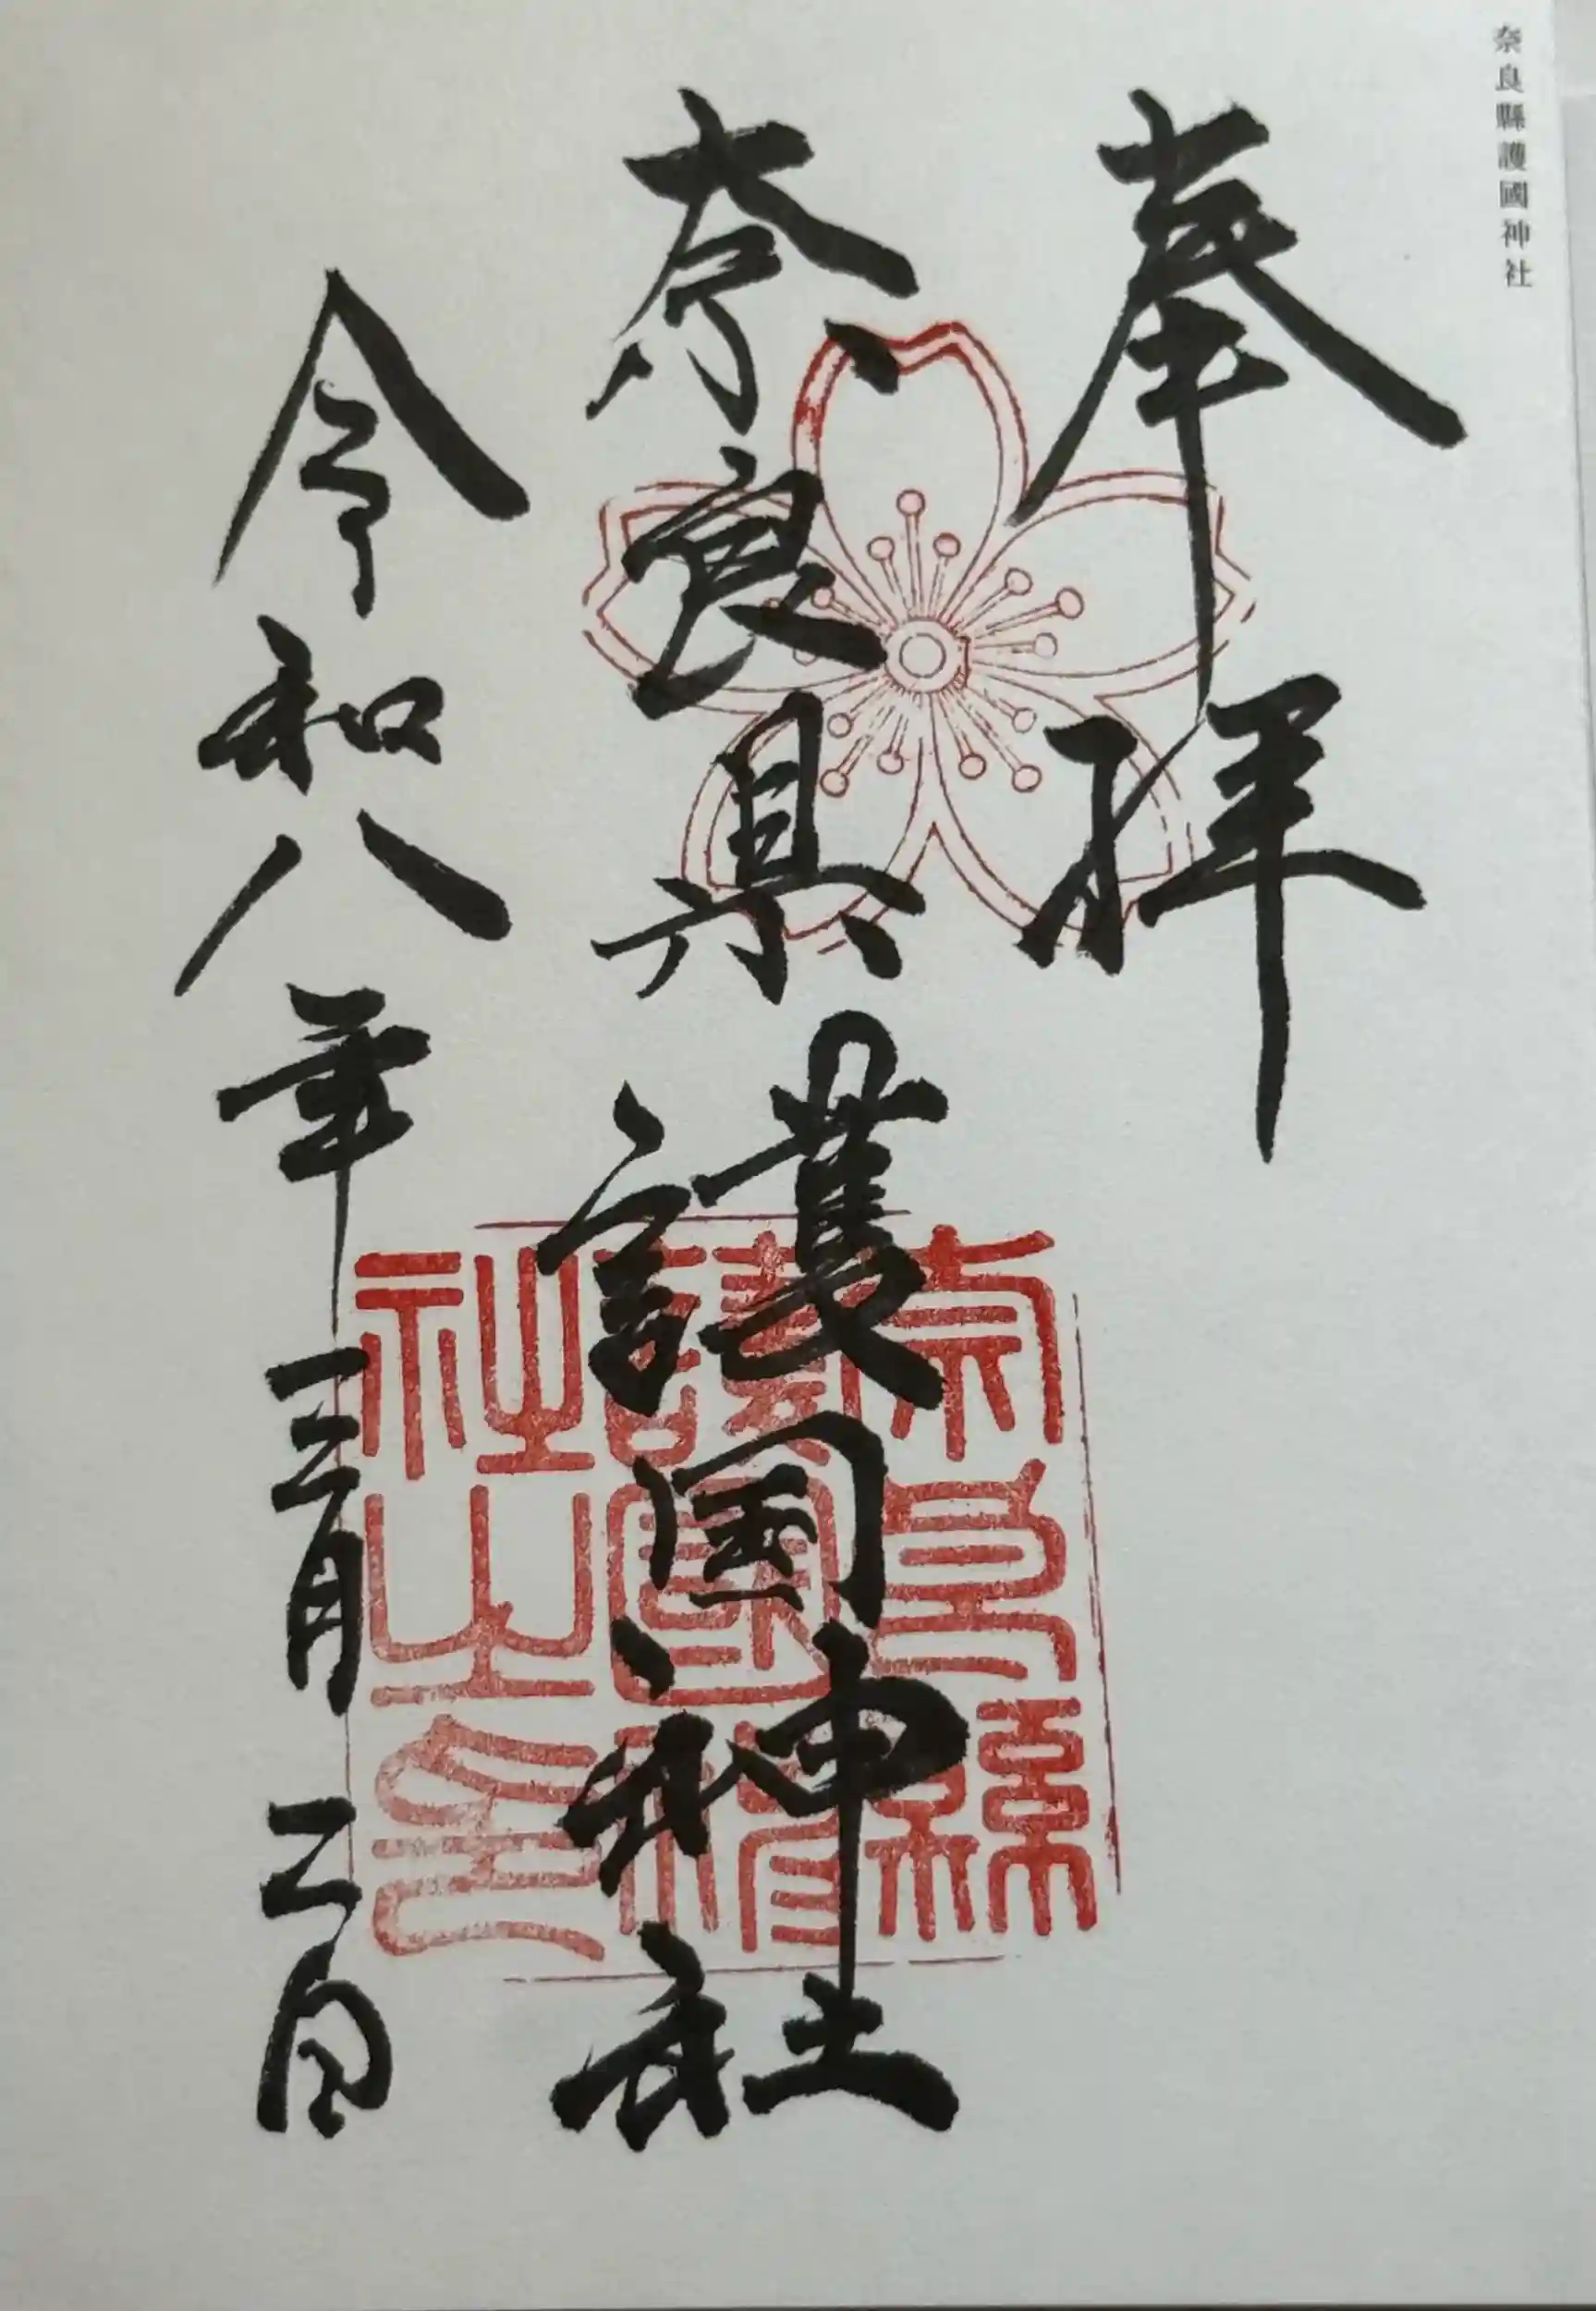 奈良縣護國神社
奉拝
奈良県護国神社
令和八年三月二日
奈良縣
護國神
社之印